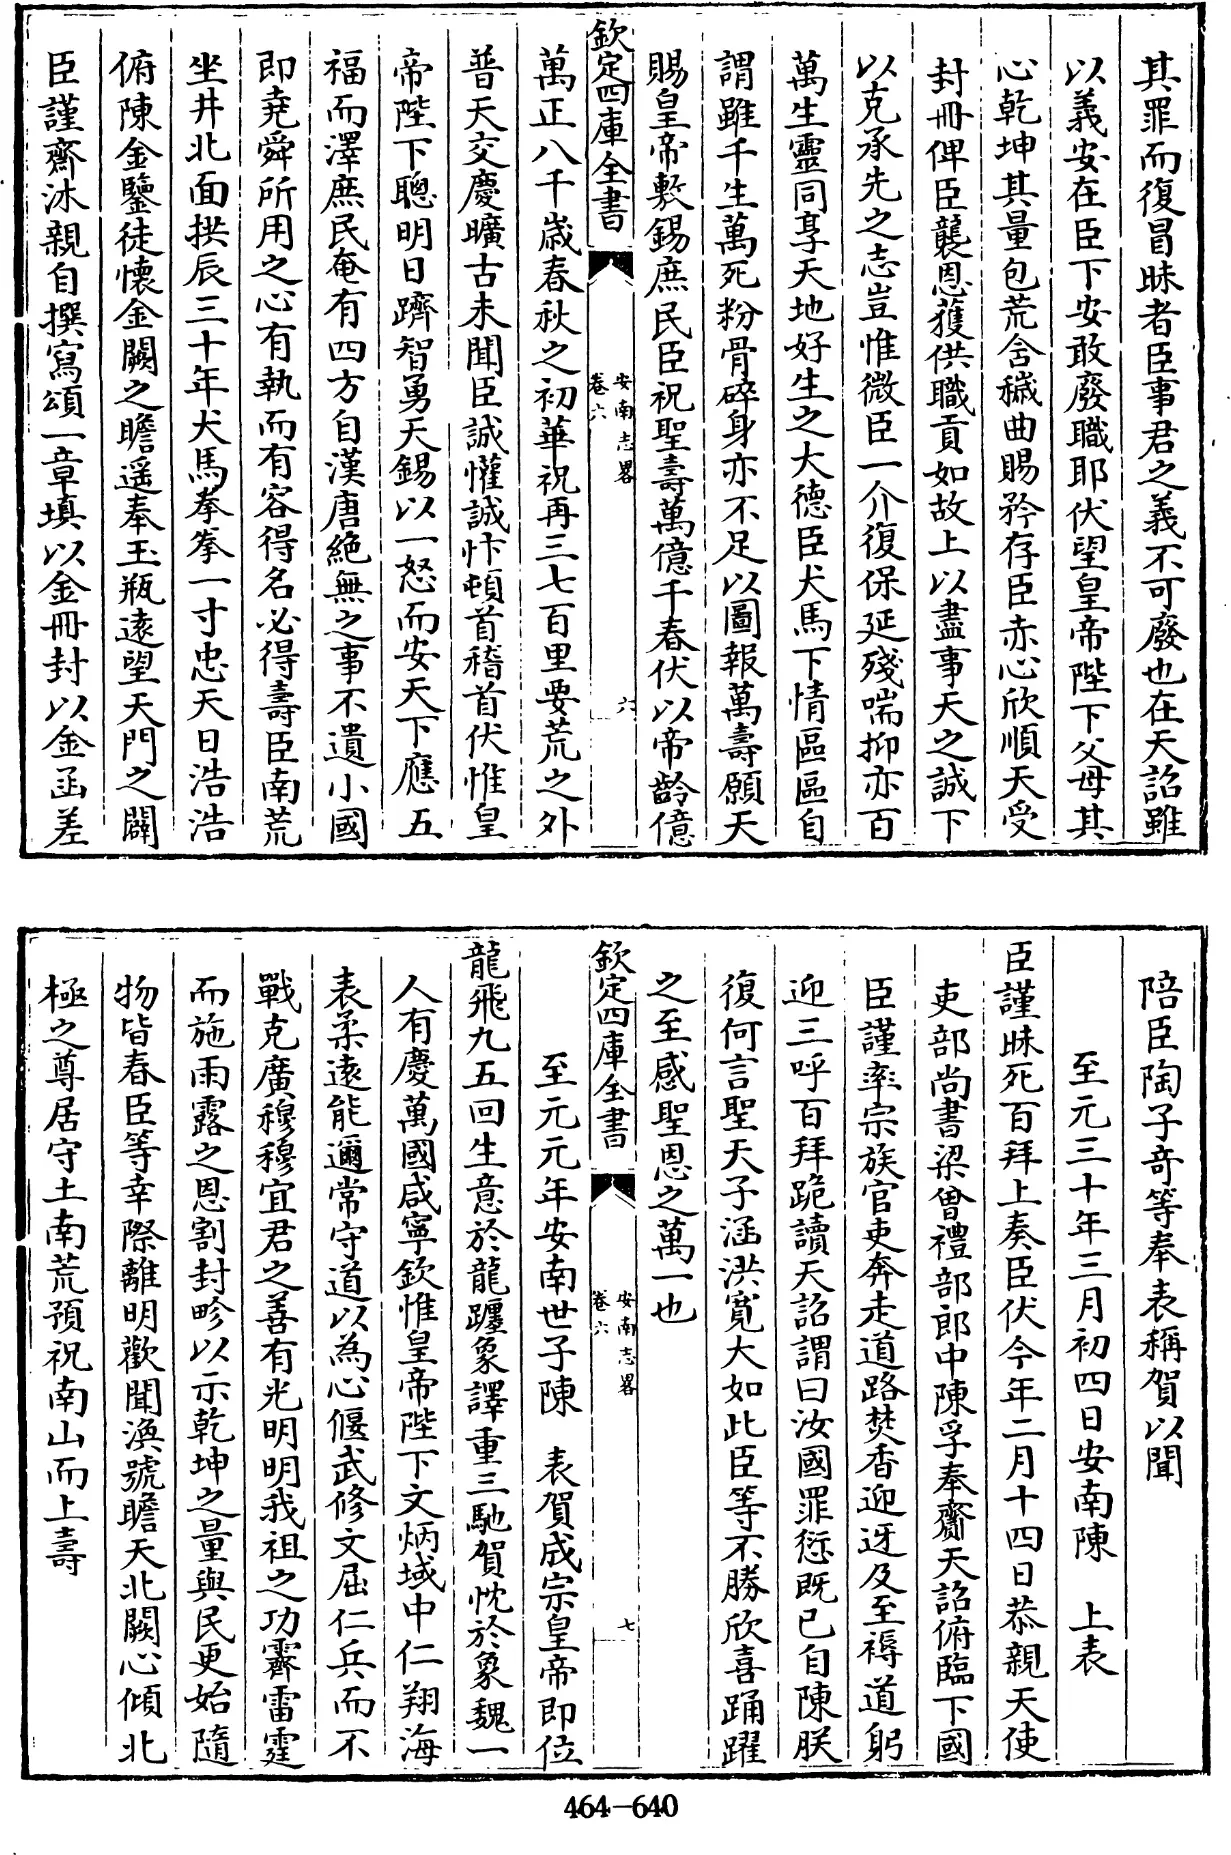 其罪而復冒昧者臣事君之義不可廢也在天詔雖
以義安在臣下安敢廢職耶伏望皇帝陛下父母其
心乾坤其量包荒含穢曲賜矜存臣赤心欣順天受
封冊俾臣襲恩獲供職貢如故上以盡事天之誠下
以克承先之志豈惟微臣一介復保延殘喘抑亦百
萬生靈同享天地好生之大德臣犬馬下情區區自
謂雖千生萬死粉骨碎身亦不足以圖報萬壽願天
賜皇帝敷錫庶民臣祝聖壽萬億千春伏以帝齡億
欽定四庫全書
安南志畧
卷六
六
萬正八千歲春秋之初華祝再三七百里要荒之外
普天交慶曠古未聞臣誠懽誠忭頓首稽首伏惟皇
帝陛下聰明日躋智勇天錫以一怒而安天下應五
福而澤庶民奄有四方自漢唐絕無之事不遺小國
即堯舜所用之心有執而有容得名必得壽臣南荒
坐井北面拱辰三十年犬馬拳拳一寸忠天日浩浩
俯陳金鑒徒懷金闕之瞻遥奉玉瓶遠望天門之闢
臣謹齋沐親自撰寫頌一章填以金冊封以金函差
陪臣陶子奇等奉表稱賀以聞
至元三十年三月初四日安南陳　上表
臣謹昧死百拜上奏臣伏今年二月十四日恭親天使
吏部尚書梁曾禮部郎中陳孚奉齎天詔俯臨下國
臣謹率宗族官吏奔走道路焚香迎迓及至褥道躬
迎三呼百拜跪讀天詔謂曰汝國罪愆既已自陳朕
復何言聖天子涵洪寬大如此臣等不勝欣喜踊躍
之至感聖恩之萬一也
欽定四庫全書
安南志畧
卷六
七
至元元年安南世子陳　表賀成宗皇帝即位
龍飛九五回生意於龍躔象譯重三馳賀忱於象魏一
人有慶萬國咸寧欽惟皇帝陛下文炳域中仁翔海
表柔遠能邇常守道以為心偃武修文屈仁兵而不
戰克廣穆穆宜君之善有光明明我祖之功霽雷霆
而施雨露之恩割封畛以示乾坤之量與民更始隨
物皆春臣等幸際離明歡聞渙號瞻天北闕心傾北
極之尊居守土南荒預祝南山而上壽
464-640